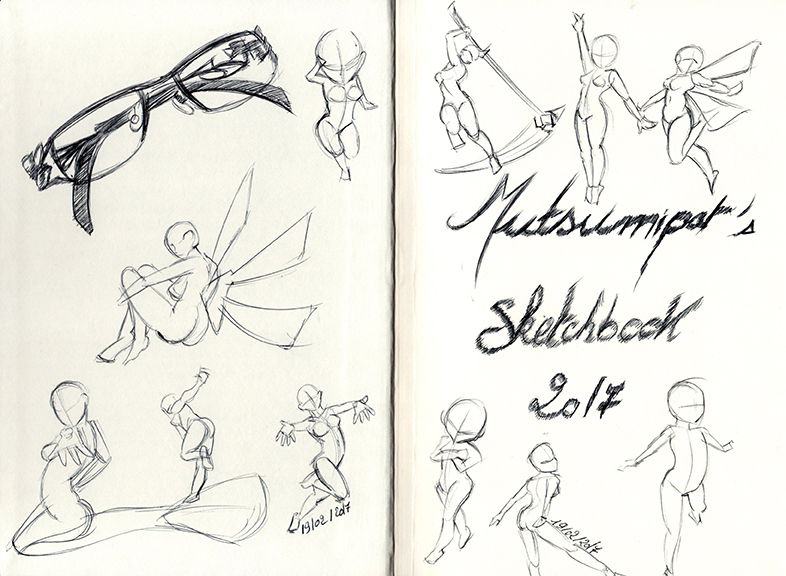 19/02/2017
Mutsumipat's
Sketchbook
2017
19/02/2017